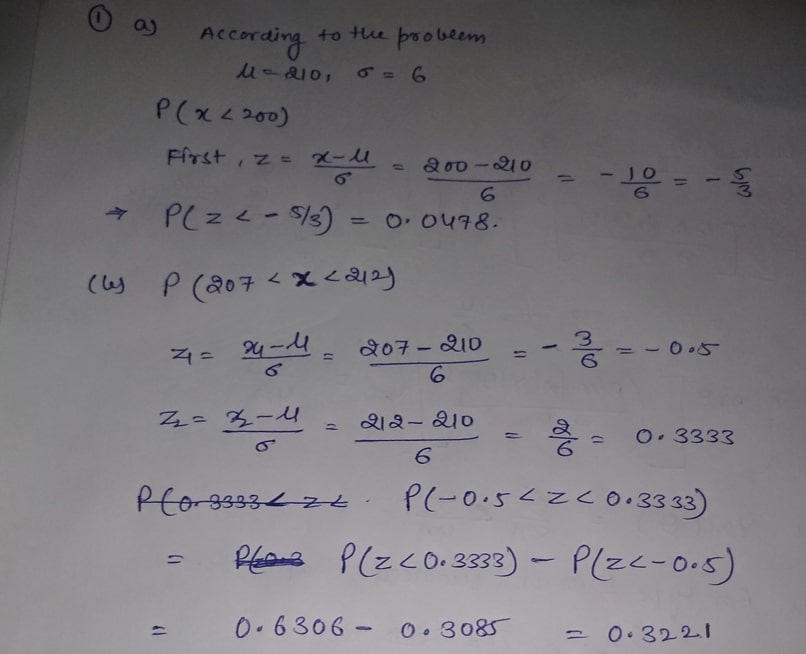 ① a) According to the probeem
μ = 210, σ = 6
P(x < 200)
First, z = x-μ/σ = 200-210/6 = -10/6 = -5/3
⇒ P(z < -5/3) = 0.0478.
(b) P(207 < x < 212)
z₁ = x₁-μ/σ = 207-210/6 = -3/6 = -0.5
z₂ = x₂-μ/σ = 212-210/6 = 2/6 = 0.3333
P(0.3333 < z < . P(-0.5 < z < 0.3333)
= P(z < 0.3333) - P(z < -0.5)
= 0.6306 - 0.3085 = 0.3221